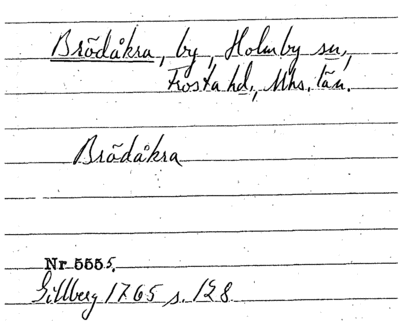 Brödåkra, by, Holmby sn,
Frosta hd., Mhs. län.
Brödåkra
Nr 5555.
Gillberg 1765 s. 128